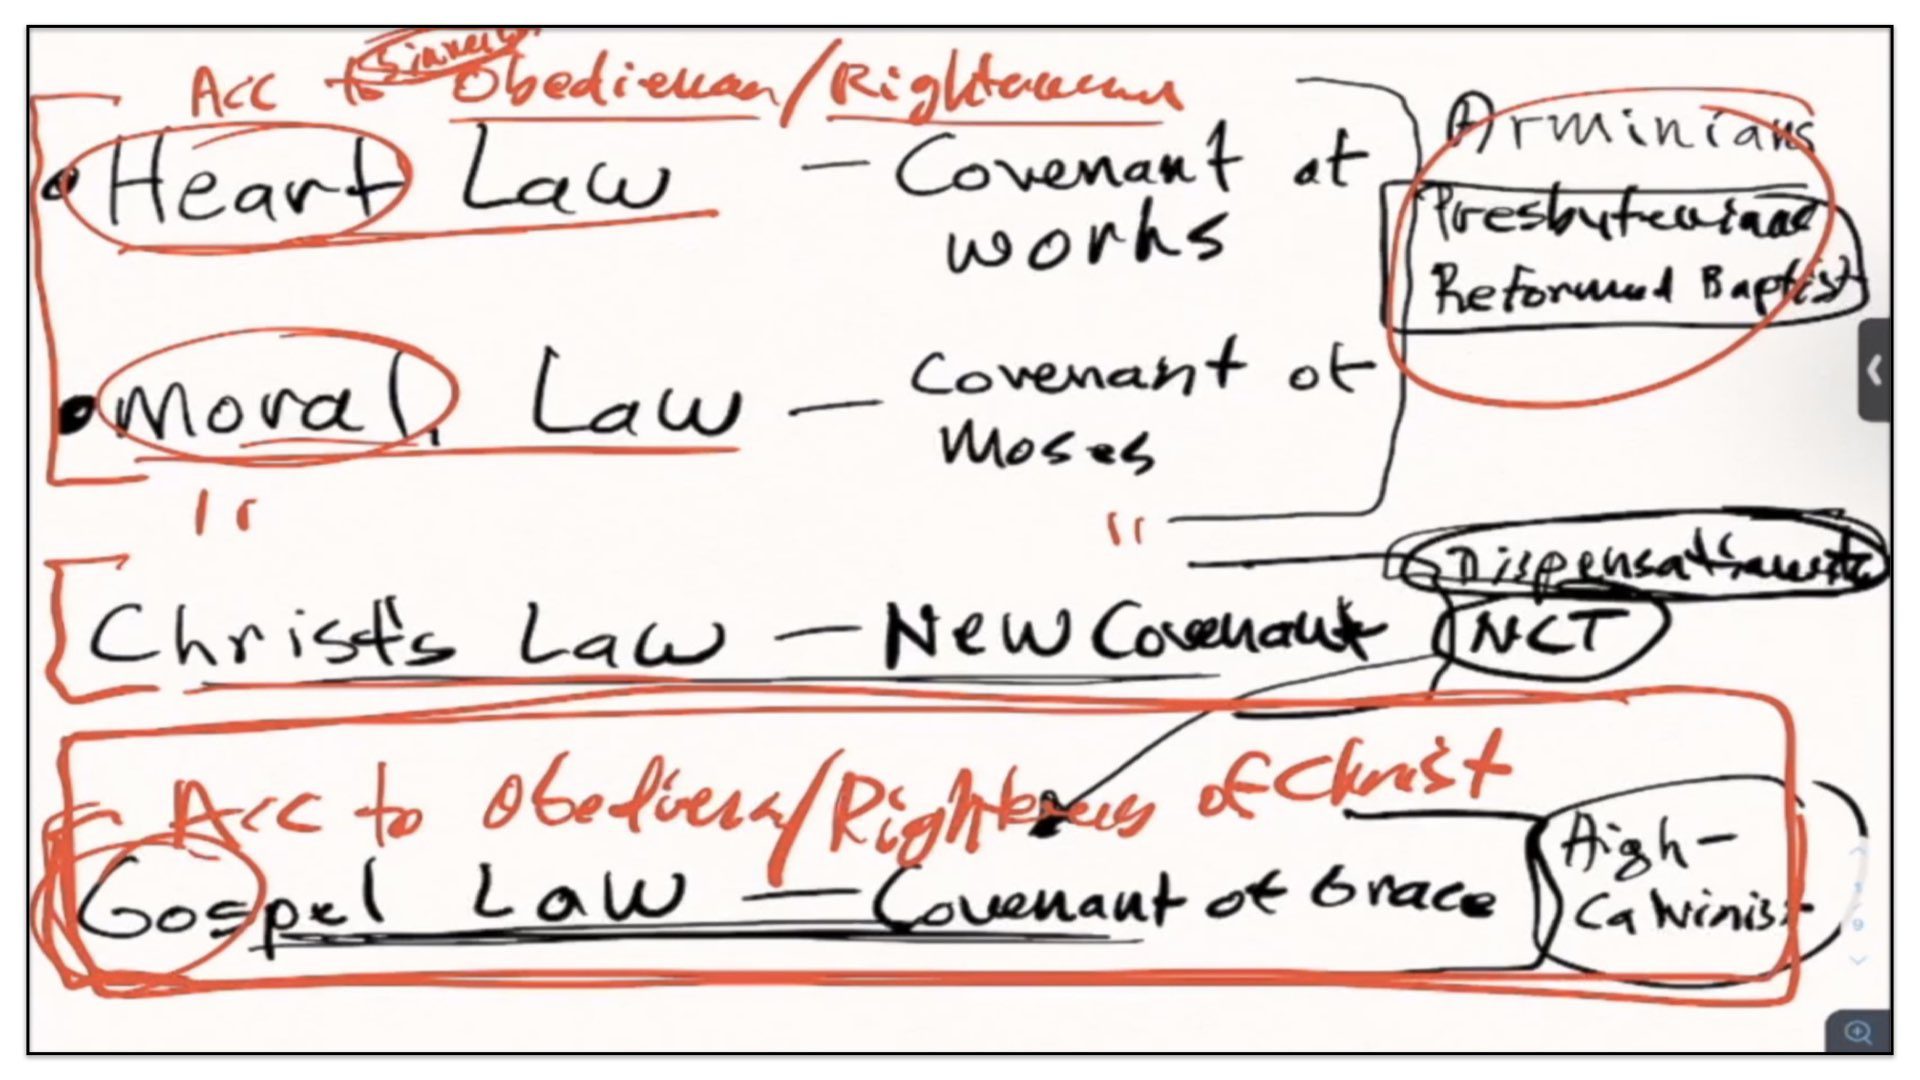 Acc to Obedience/Righteousness
• Heart Law — Covenant of
works
Arminians
Presbyterians
Reformed Baptist
• Moral Law — Covenant of
Moses
" "
Dispensationalists
Christ's Law — New Covenant
NCT
Acc to Obedience/Righteousness of Christ
Gospel Law — Covenant of Grace
High-
Calvinist